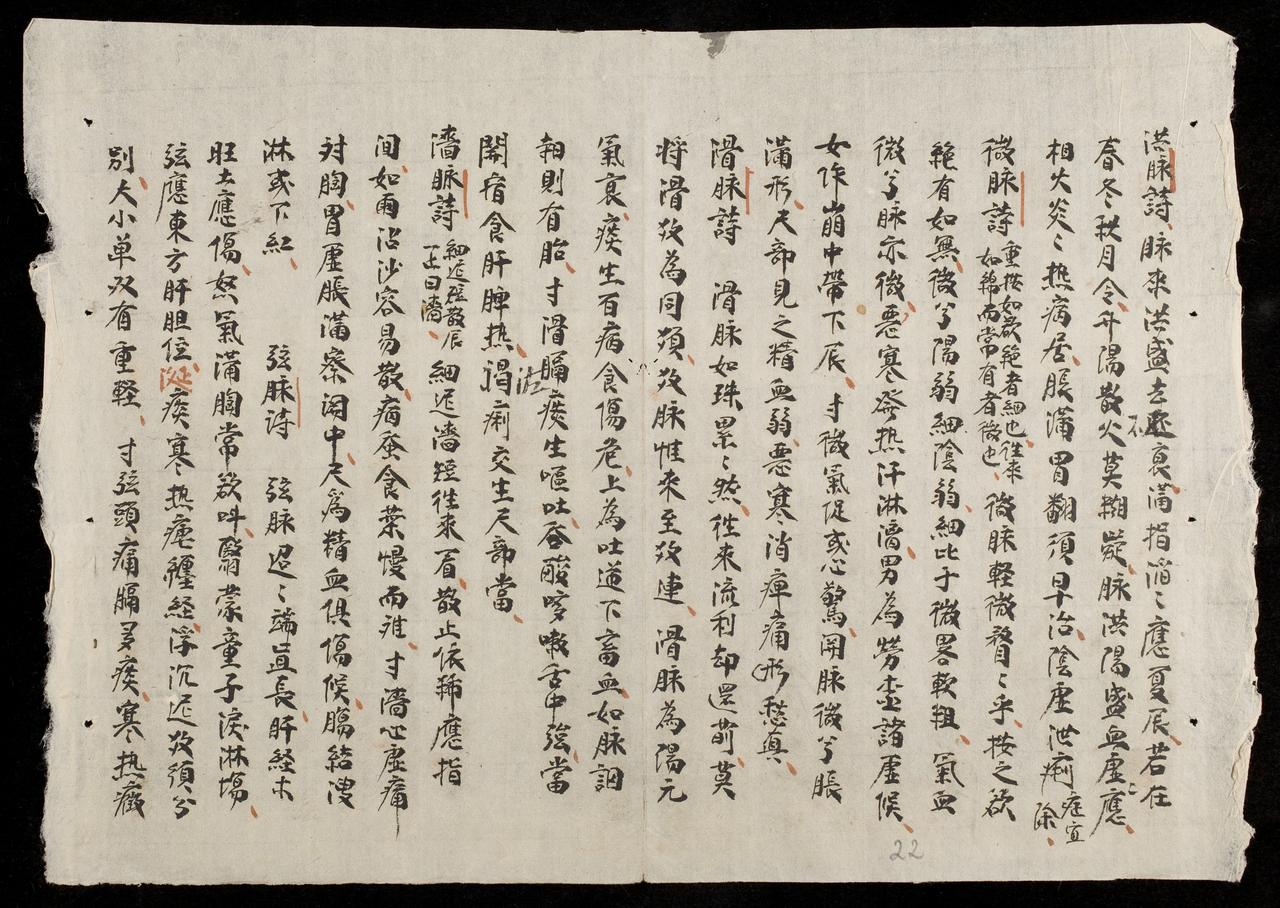 洪脉詩、脉來洪盛去还衰滿指滔〻應夏辰、若在
春冬秋月令升陽散火莫糊𭥍、脉洪陽盛血虛應、
相火炎〻热病居、脹滿胃翻須早治陰虛泄痢症宜除、
微脉詩 重按如欲絶者細也徃來如綿而常有者微也、微脉軽微瞥〻乎、按之欲
絶有如無、微兮陽弱細陰弱、細比于微畧軟粗、氣血
微兮脉亦微、惡寒發热汗淋漓、男為勞䖏諸虛候、
女作崩中帶下辰、寸微氣促或心驚、関脉微兮脹
滿形、尺部見之精血弱、惡寒消痺痛形愁真、
滑脉詩 滑脉如珠累〻然、徃來流利却還前、莫
将滑数為同類、数脉惟來至数連、滑脉為陽元
氣衰、痰生百病食傷危、上為吐逆下畜血、如脉調
和則有胎、寸滑膈痰生嘔吐、吞酸咳嗽舌中弦、當
関宿食肝脾热、渴痢交生尺部當、
濇脉詩 細遲短散辰一止曰濇、細遲濇短徃來看、散止依稀應指
间、如雨沾沙容易散、病蚕食葉慢而难、寸濇心虛痛
对胸、胃虛脹滿察関中、尺為精血俱傷候、腸結溲
淋或下紅、 弦脉詩 弦脉迢〻端直長、肝経木
旺土應傷、怒氣滿胸常欲呌、翳蒙童子淚淋塲、
弦應東方肝胆位、痰寒热瘧纏経、浮沉迟数須分
别、大小单双有重軽、寸弦頭痛膈多痰、寒热癥
22